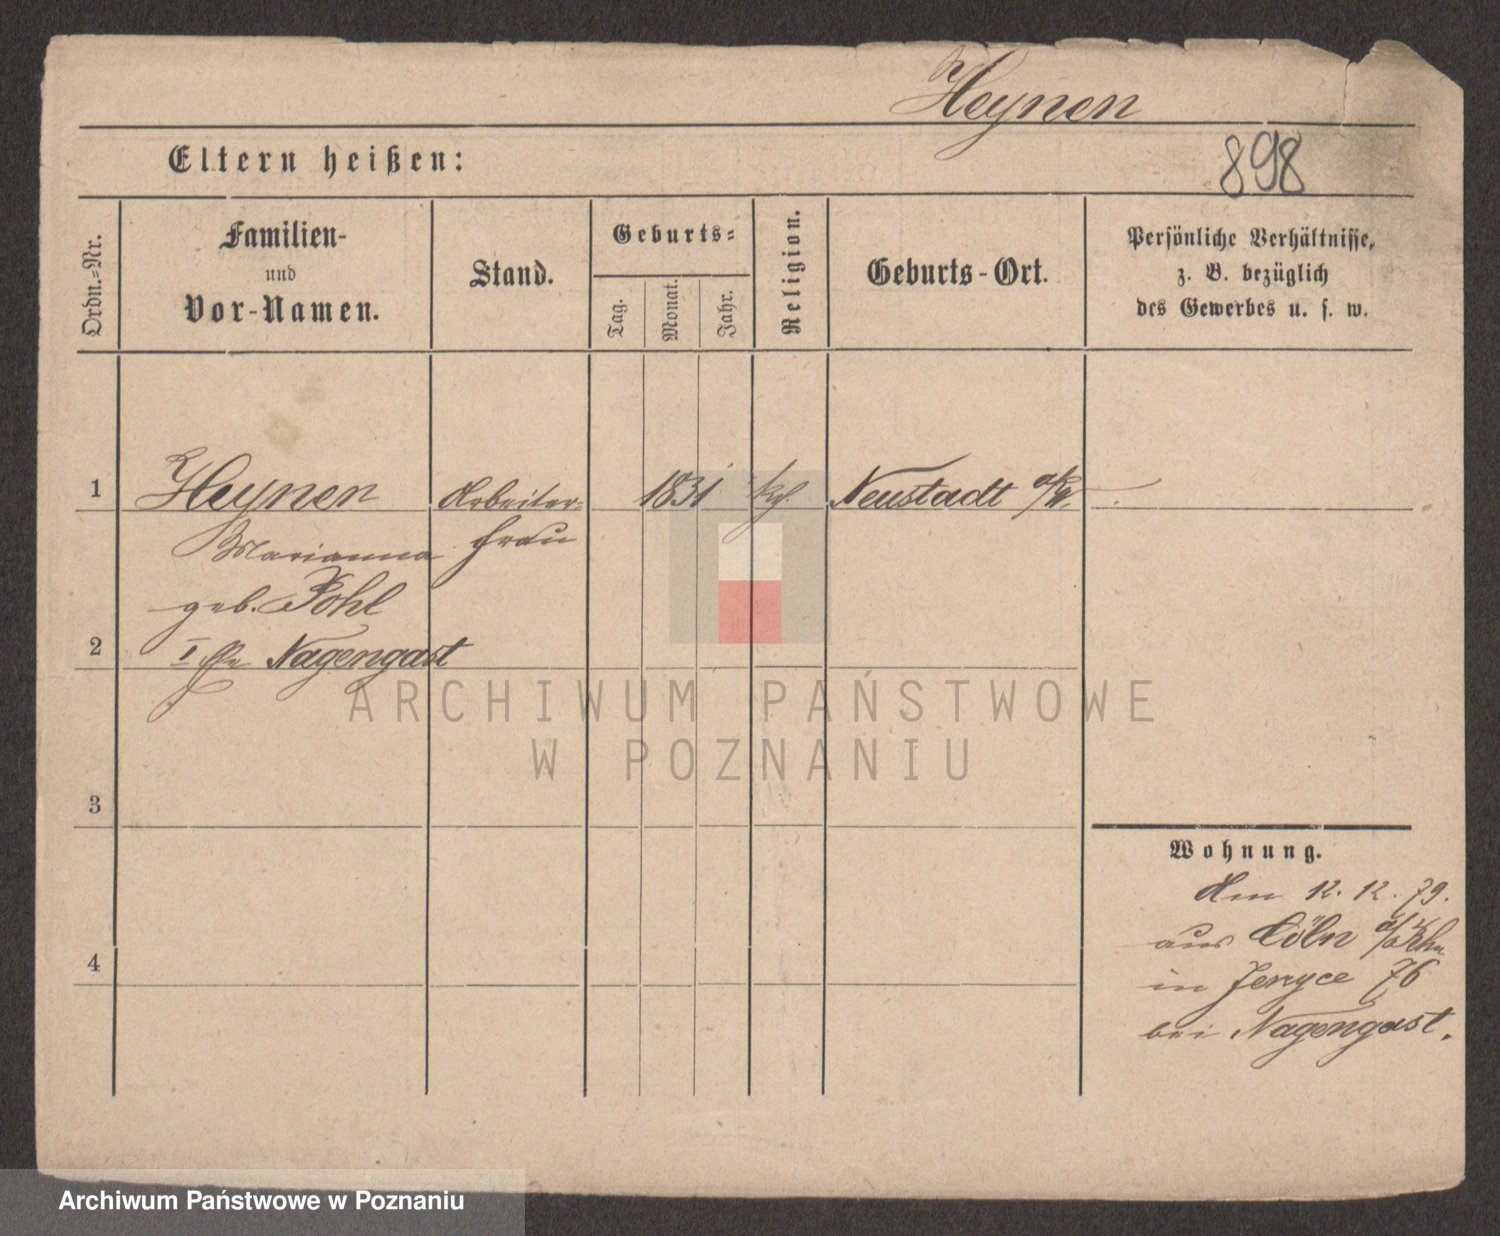 Heynen
898
Eltern heißen:
Ordn.-Nr.
Familien-
und
Vor-Namen.
Stand.
Geburts-
Tag.
Monat.
Jahr.
Religion.
Geburts-Ort.
Persönliche Verhältnisse,
z. B. bezüglich
des Gewerbes u. s. w.
1 Heynen Arbeiter- 1831 Neustadt a/W.
Marianna frau
geb. Pohl
2 I Nagengast
ARCHIWUM PAŃSTWOWE
W POZNANIU
3
Wohnung.
Am 12. 12. 79.
aus Cöln
4
in Jerzyce 76
bei Nagengast.
Archiwum Państwowe w Poznaniu